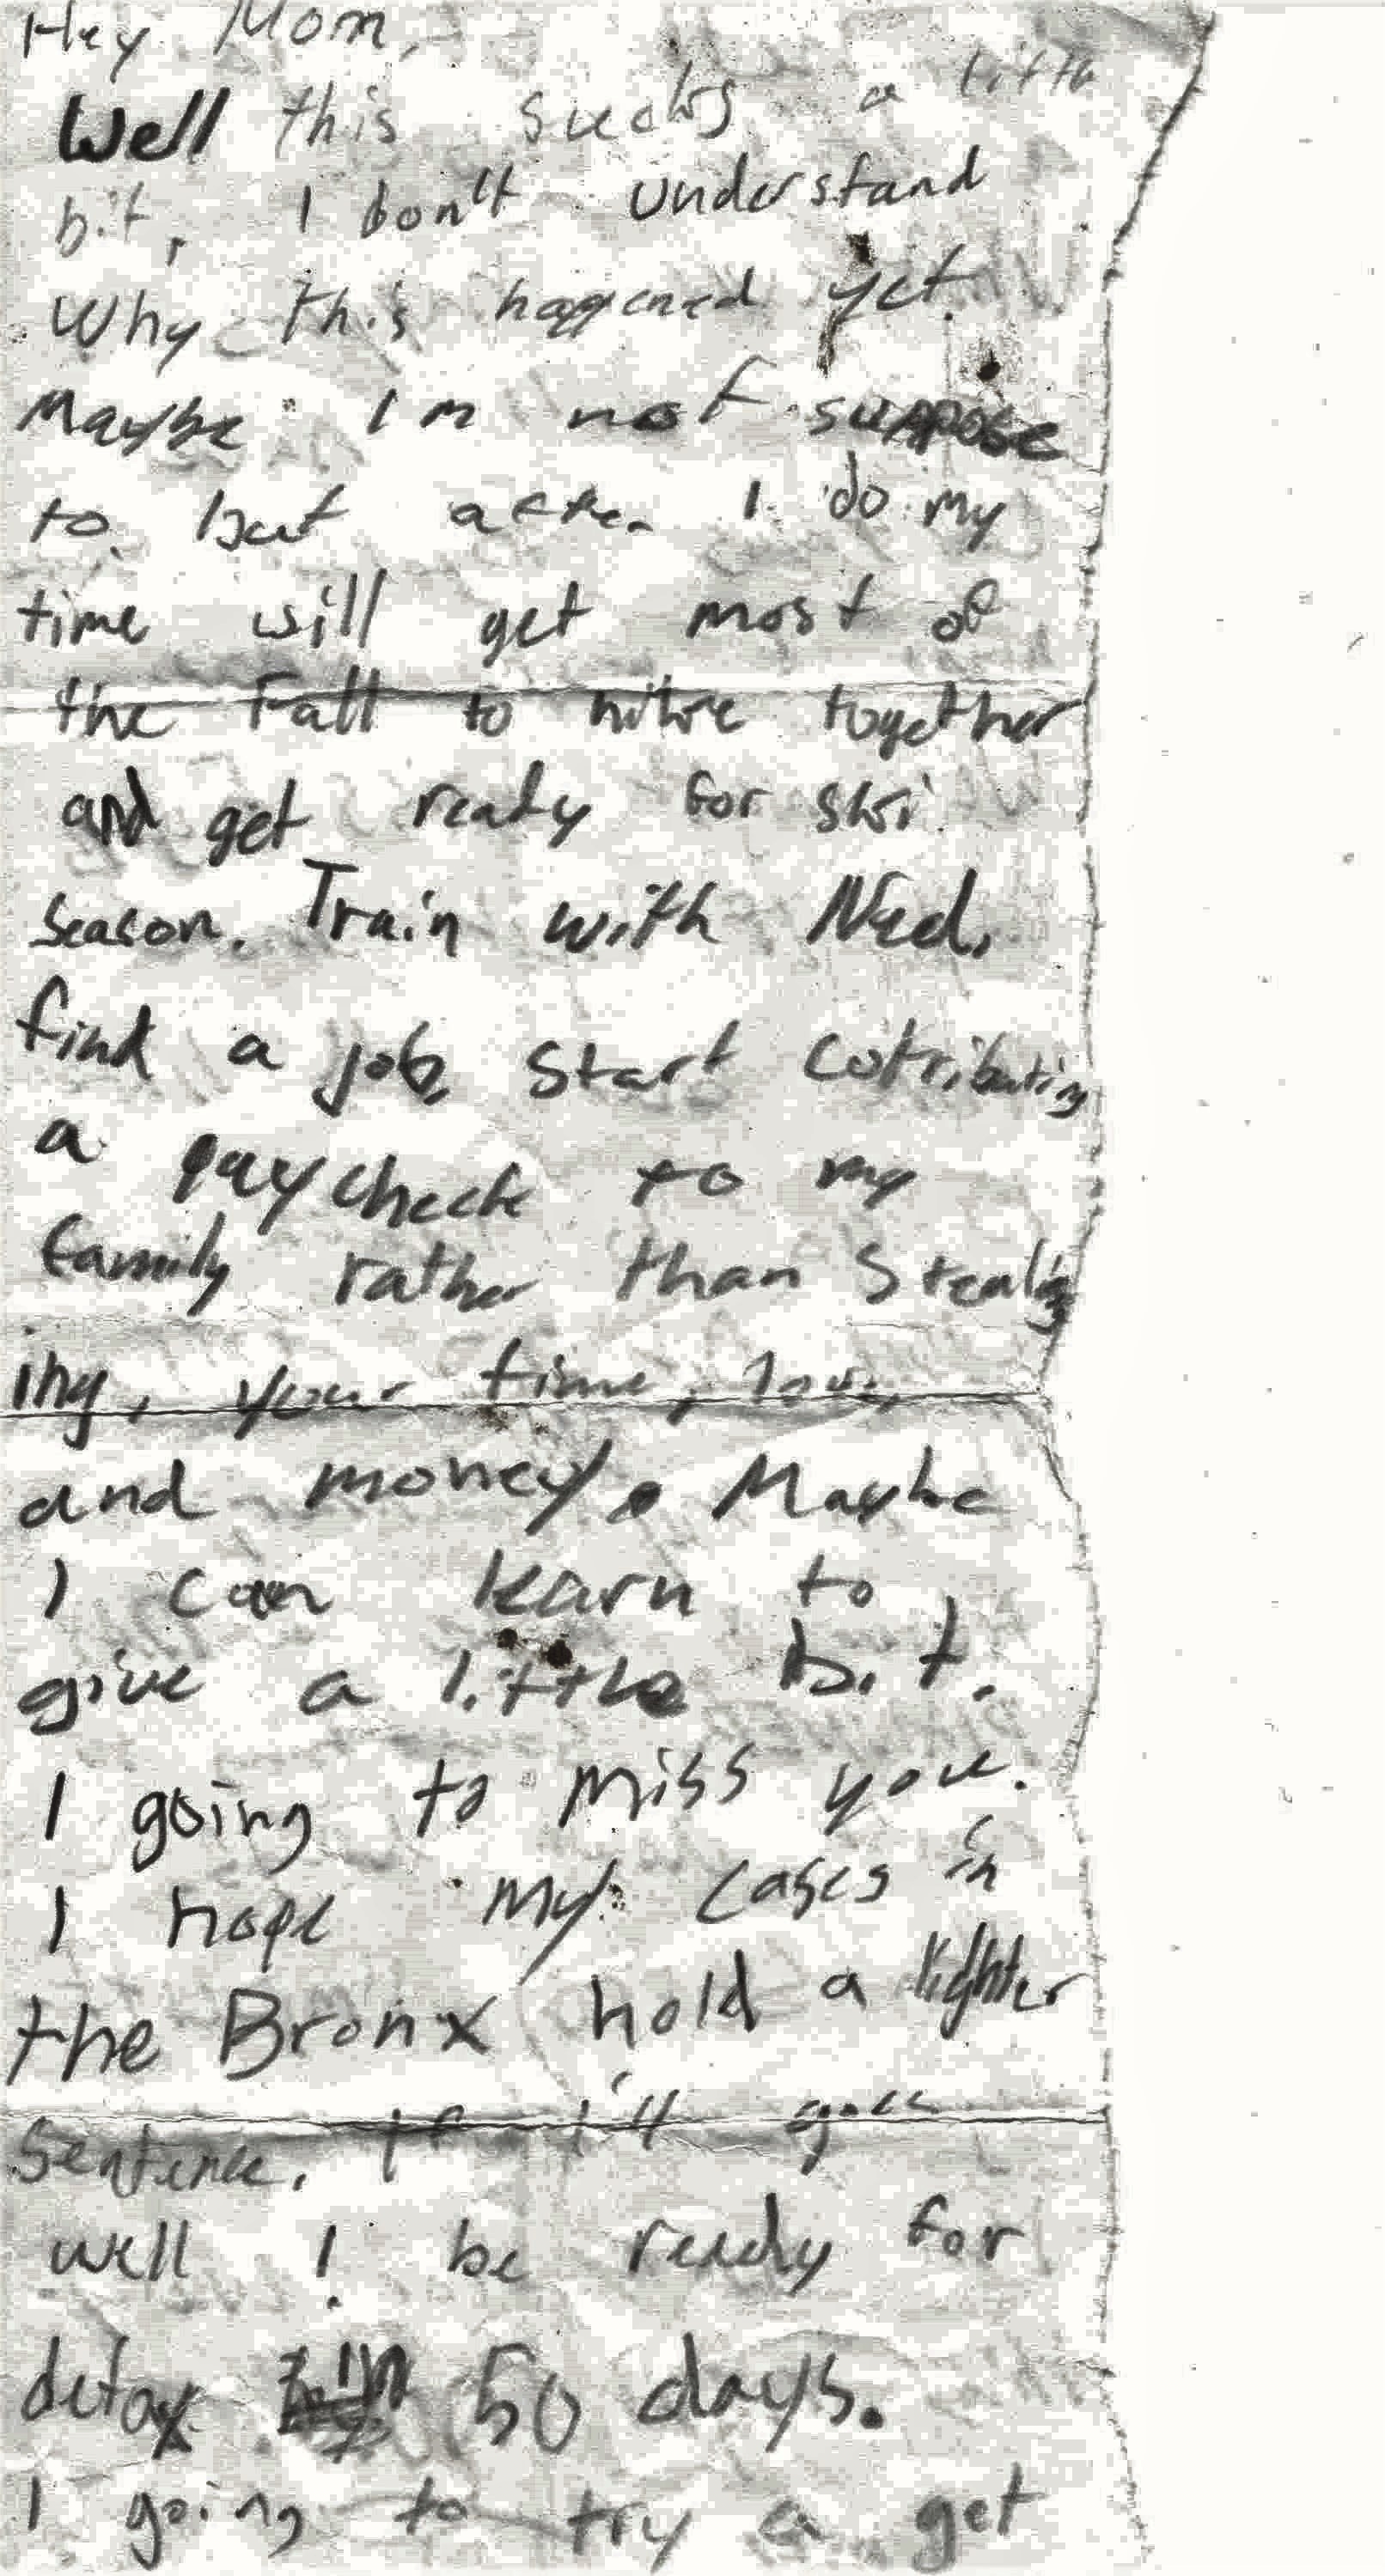 Hey Mom,
Well this sucks a little
bit, I don't understand
Why this happened yet.
Maybe I'm not suppose
to, but after I do my
time will get most of
the Fall to hike together
and get ready for ski
season. Train with Ned,
find a job, start cotributing
a paycheck to my
family rather than Steal
ing, your time, love,
and money. Maybe
I can learn to
give a little bit.
I going to miss you.
I hope my cases in
the Bronx hold a lighter
Sentence. If all goes
well I be ready for
detox in 50 days.
I going to try a get